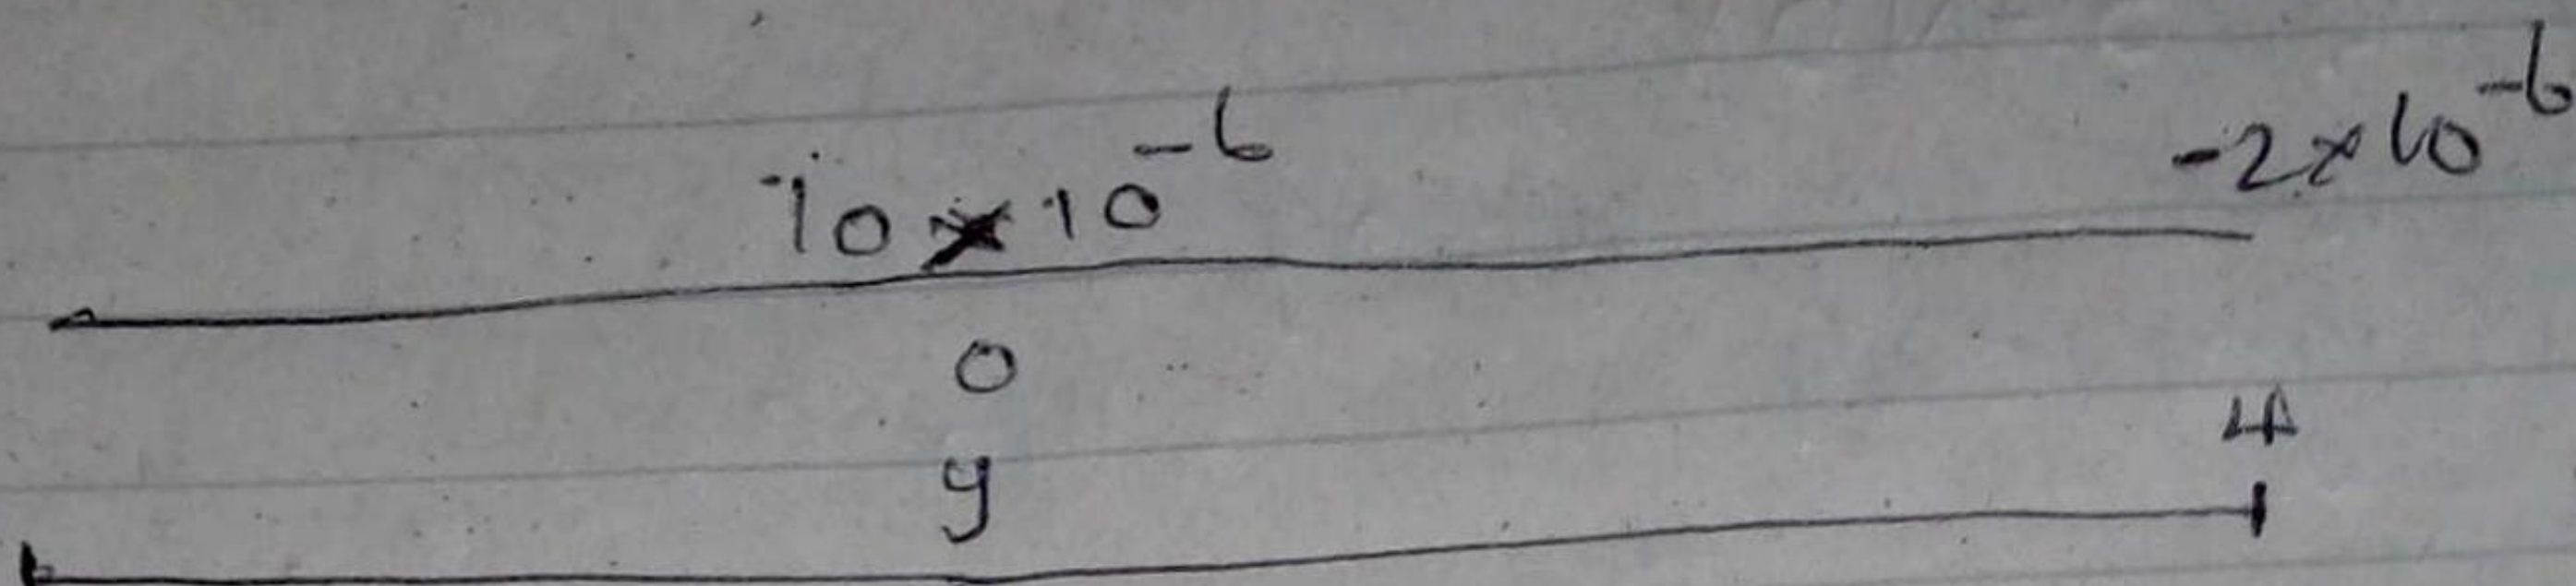 -10 × 10⁻⁶ -2×10⁻⁶
0
y 4